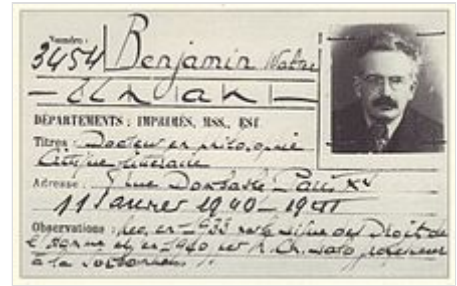 Numéro :
3454 Benjamin Walter
DÉPARTEMENTS : IMPRIMÉS, MSS., EST
Titres : Docteur en philosophie
Critique littéraire
Adresse : rue Dombasle Paris XV
11 Janvier 1940 - 1941
Observations : en 1933 Droit de
l' et en 1940 par professeur
à la Sorbonne